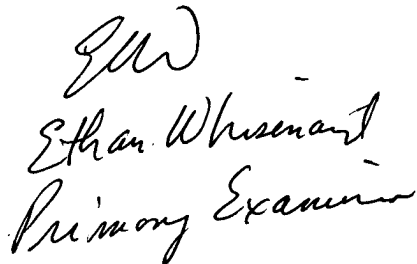 EW
Ethan Whisenant
Primary Examiner